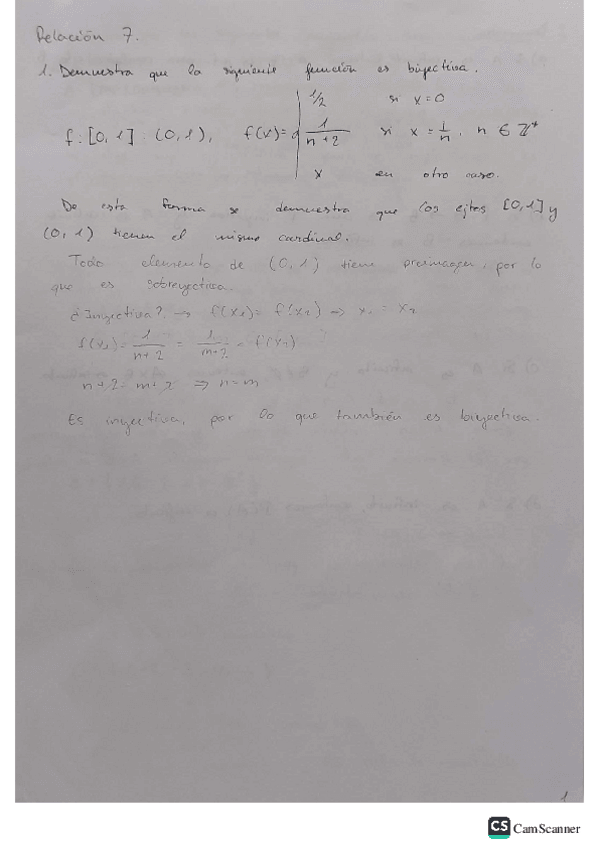 Relación 7.
1. Demuestra que la siguiente función es biyectiva.
1/2 si x=0
f: [0,1] : (0,1), f(x)= 1/(n+2) si x = 1/n, n ∈ ℤ⁺
x en otro caso.
De esta forma se demuestra que los ejtos [0,1] y
(0,1) tienen el mismo cardinal.
Todo elemento de (0,1) tiene preimagen, por lo
que es sobreyectiva.
¿Inyectiva? → f(x₁)= f(x₂) ⇒ x₁ = x₂
f(x₁)= 1/(n+2) = 1/(m+2) = f(x₂)
n+2=m+2 ⇒ n=m
Es inyectiva, por lo que también es biyectiva.
1
CS CamScanner